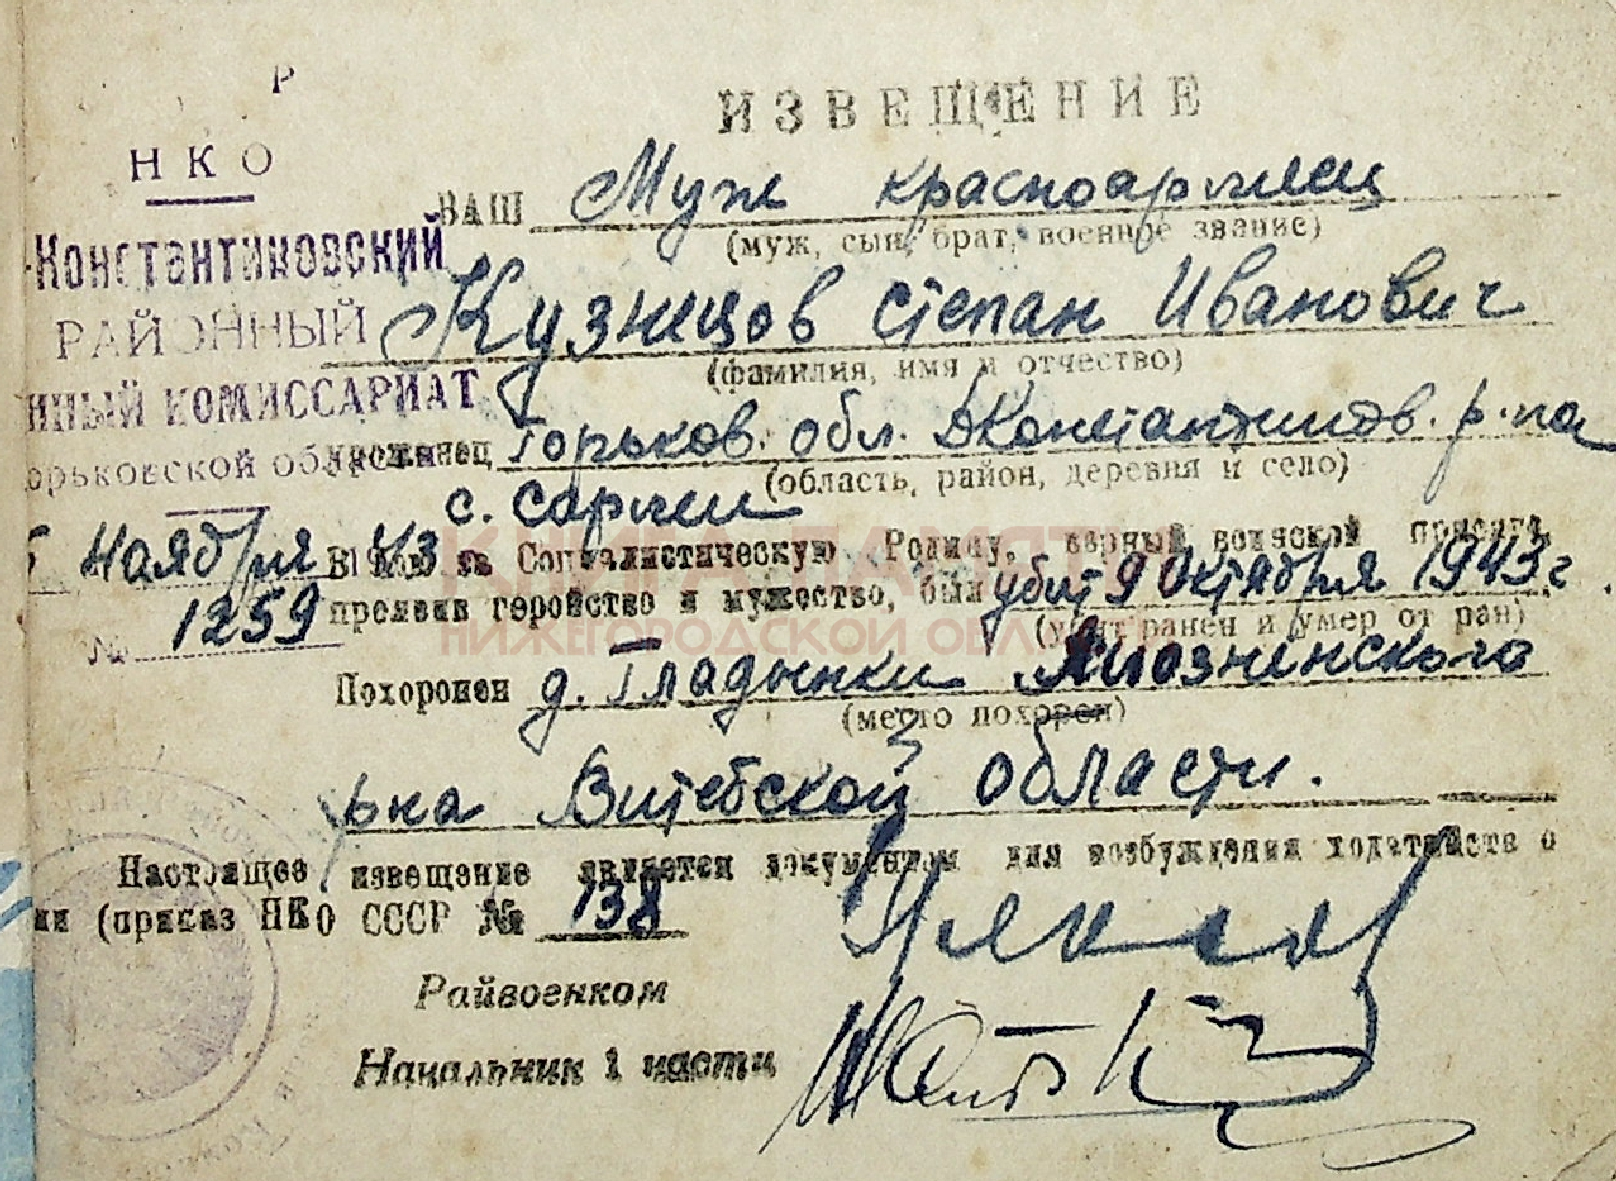 Р
ИЗВЕЩЕНИЕ
НКО
ВАШ Муж красноармеец
(муж, сын, брат, военное звание)
Константиновский
РАЙОННЫЙ
Кузнецов Степан Иванович
(фамилия, имя и отчество)
нный КОМИССАРИАТ
орьковской области
уроженец Горьков. обл. Дконстантинов. р-на
(область, район, деревня и село)
с. Сарлеи
5 Ноября 43
В бою за Социалистическую Родину, верный воинской присяге,
№ 1259
проявив геройство и мужество, был убит 9 Октября 1943 г.
(убит, ранен и умер от ран)
КНИГА ПАМЯТИ
НИЖЕГОРОДСКОЙ ОБЛАСТИ
Похоронен д. Гладынки Лиозненского
(место похорон)
р-на Витебской области.
Настоящее извещение является документом для возбуждения ходатайств о
ии (приказ НКО СССР № 138
Райвоенком
Начальник 1 части